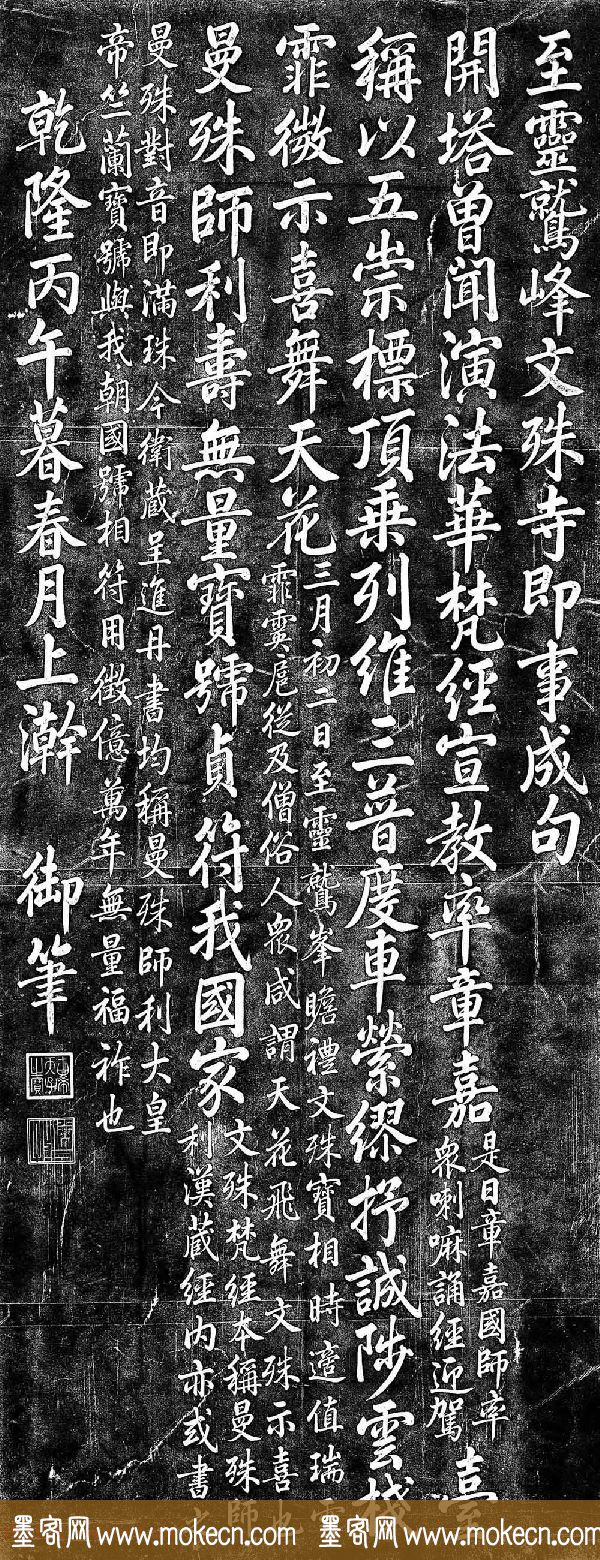 至靈鷲峰文殊寺即事成句
開塔曾聞演法華梵經宣教率章嘉
是日章嘉國師率
衆喇嘛誦經迎駕
臺
稱以五崇標頂乘列維三普度車縈繆抒誠陟雲棧
霏微示喜舞天花
三月初二日至靈鷲峯瞻禮文殊寶相時適值瑞雪
霏霙扈從及僧俗人衆咸謂天花飛舞文殊示喜也
曼殊師利壽無量寶號貞符我國家
文殊梵經本稱曼殊師
利漢藏經內亦或書
曼殊對音即滿珠今衛藏呈進丹書均稱曼殊師利大皇
帝竺蘭寶號與我朝國號相符用徵億萬年無量福祚也
乾隆丙午暮春月上澣 御筆
墨客网www.mokecn.com 墨客网www.mokecn.com